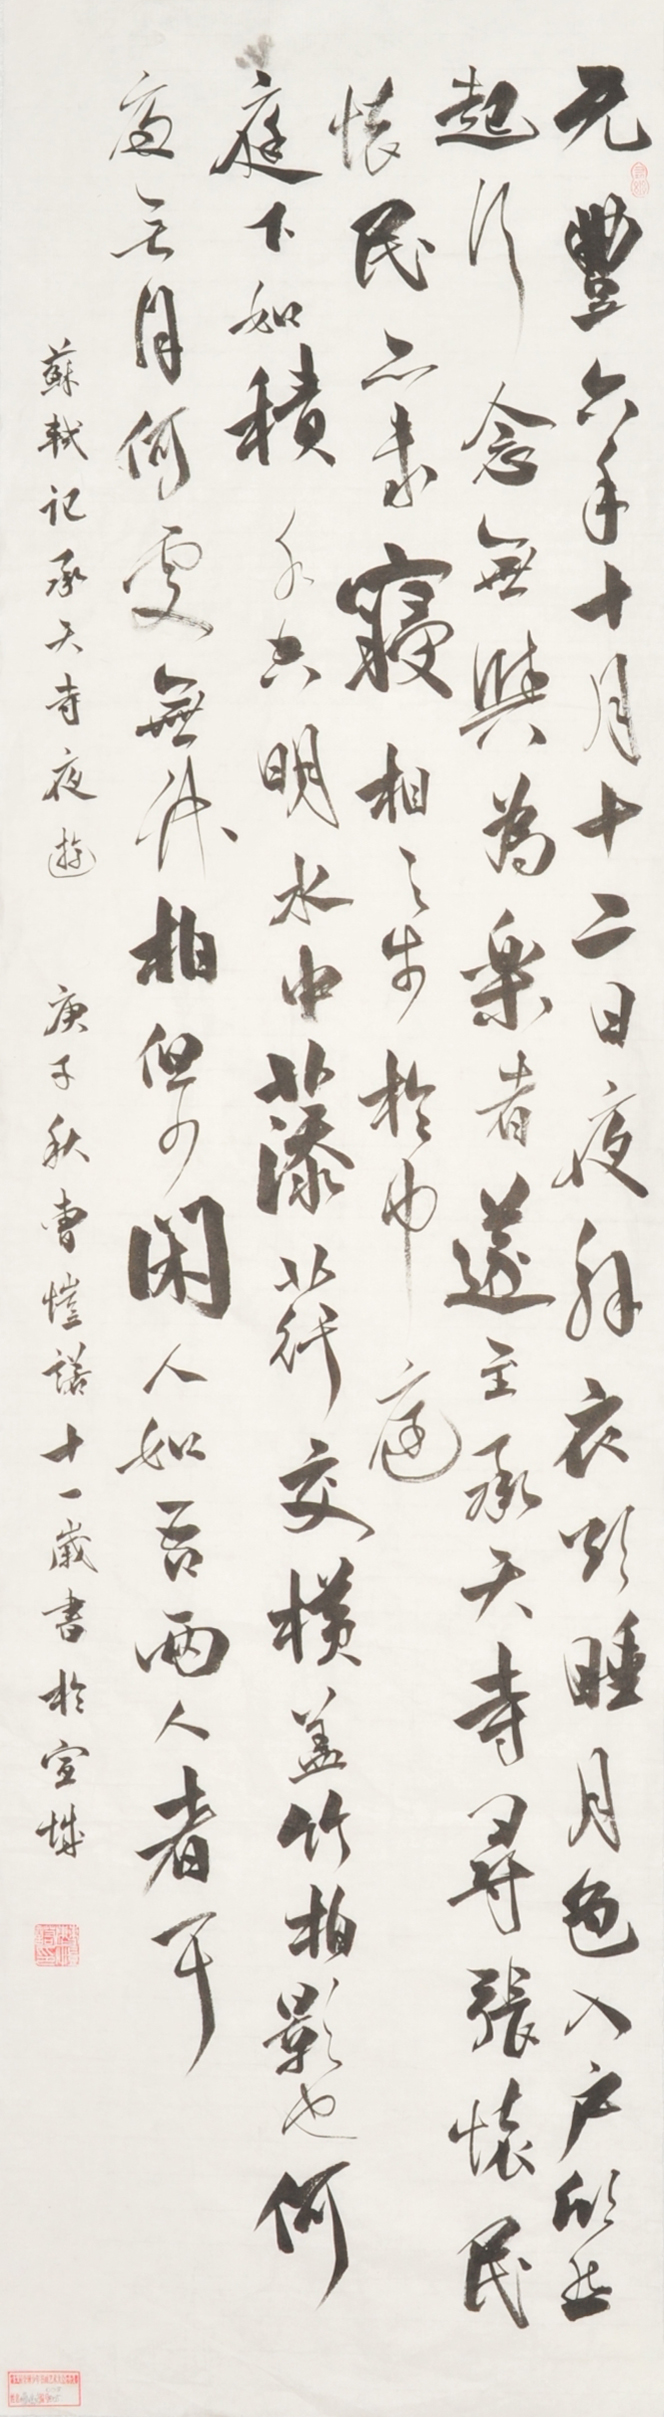 元豐六年十月十二日夜解衣欲睡月色入户欣然
起行念無與為樂者遂至承天寺尋張懷民
懷民亦未寢相与步於中庭
庭下如積水空明水中藻荇交橫蓋竹柏影也何
夜无月何處無竹柏但少閑人如吾兩人者耳
蘇軾記承天寺夜遊 庚子秋曹愷諾十一歲書於宣城